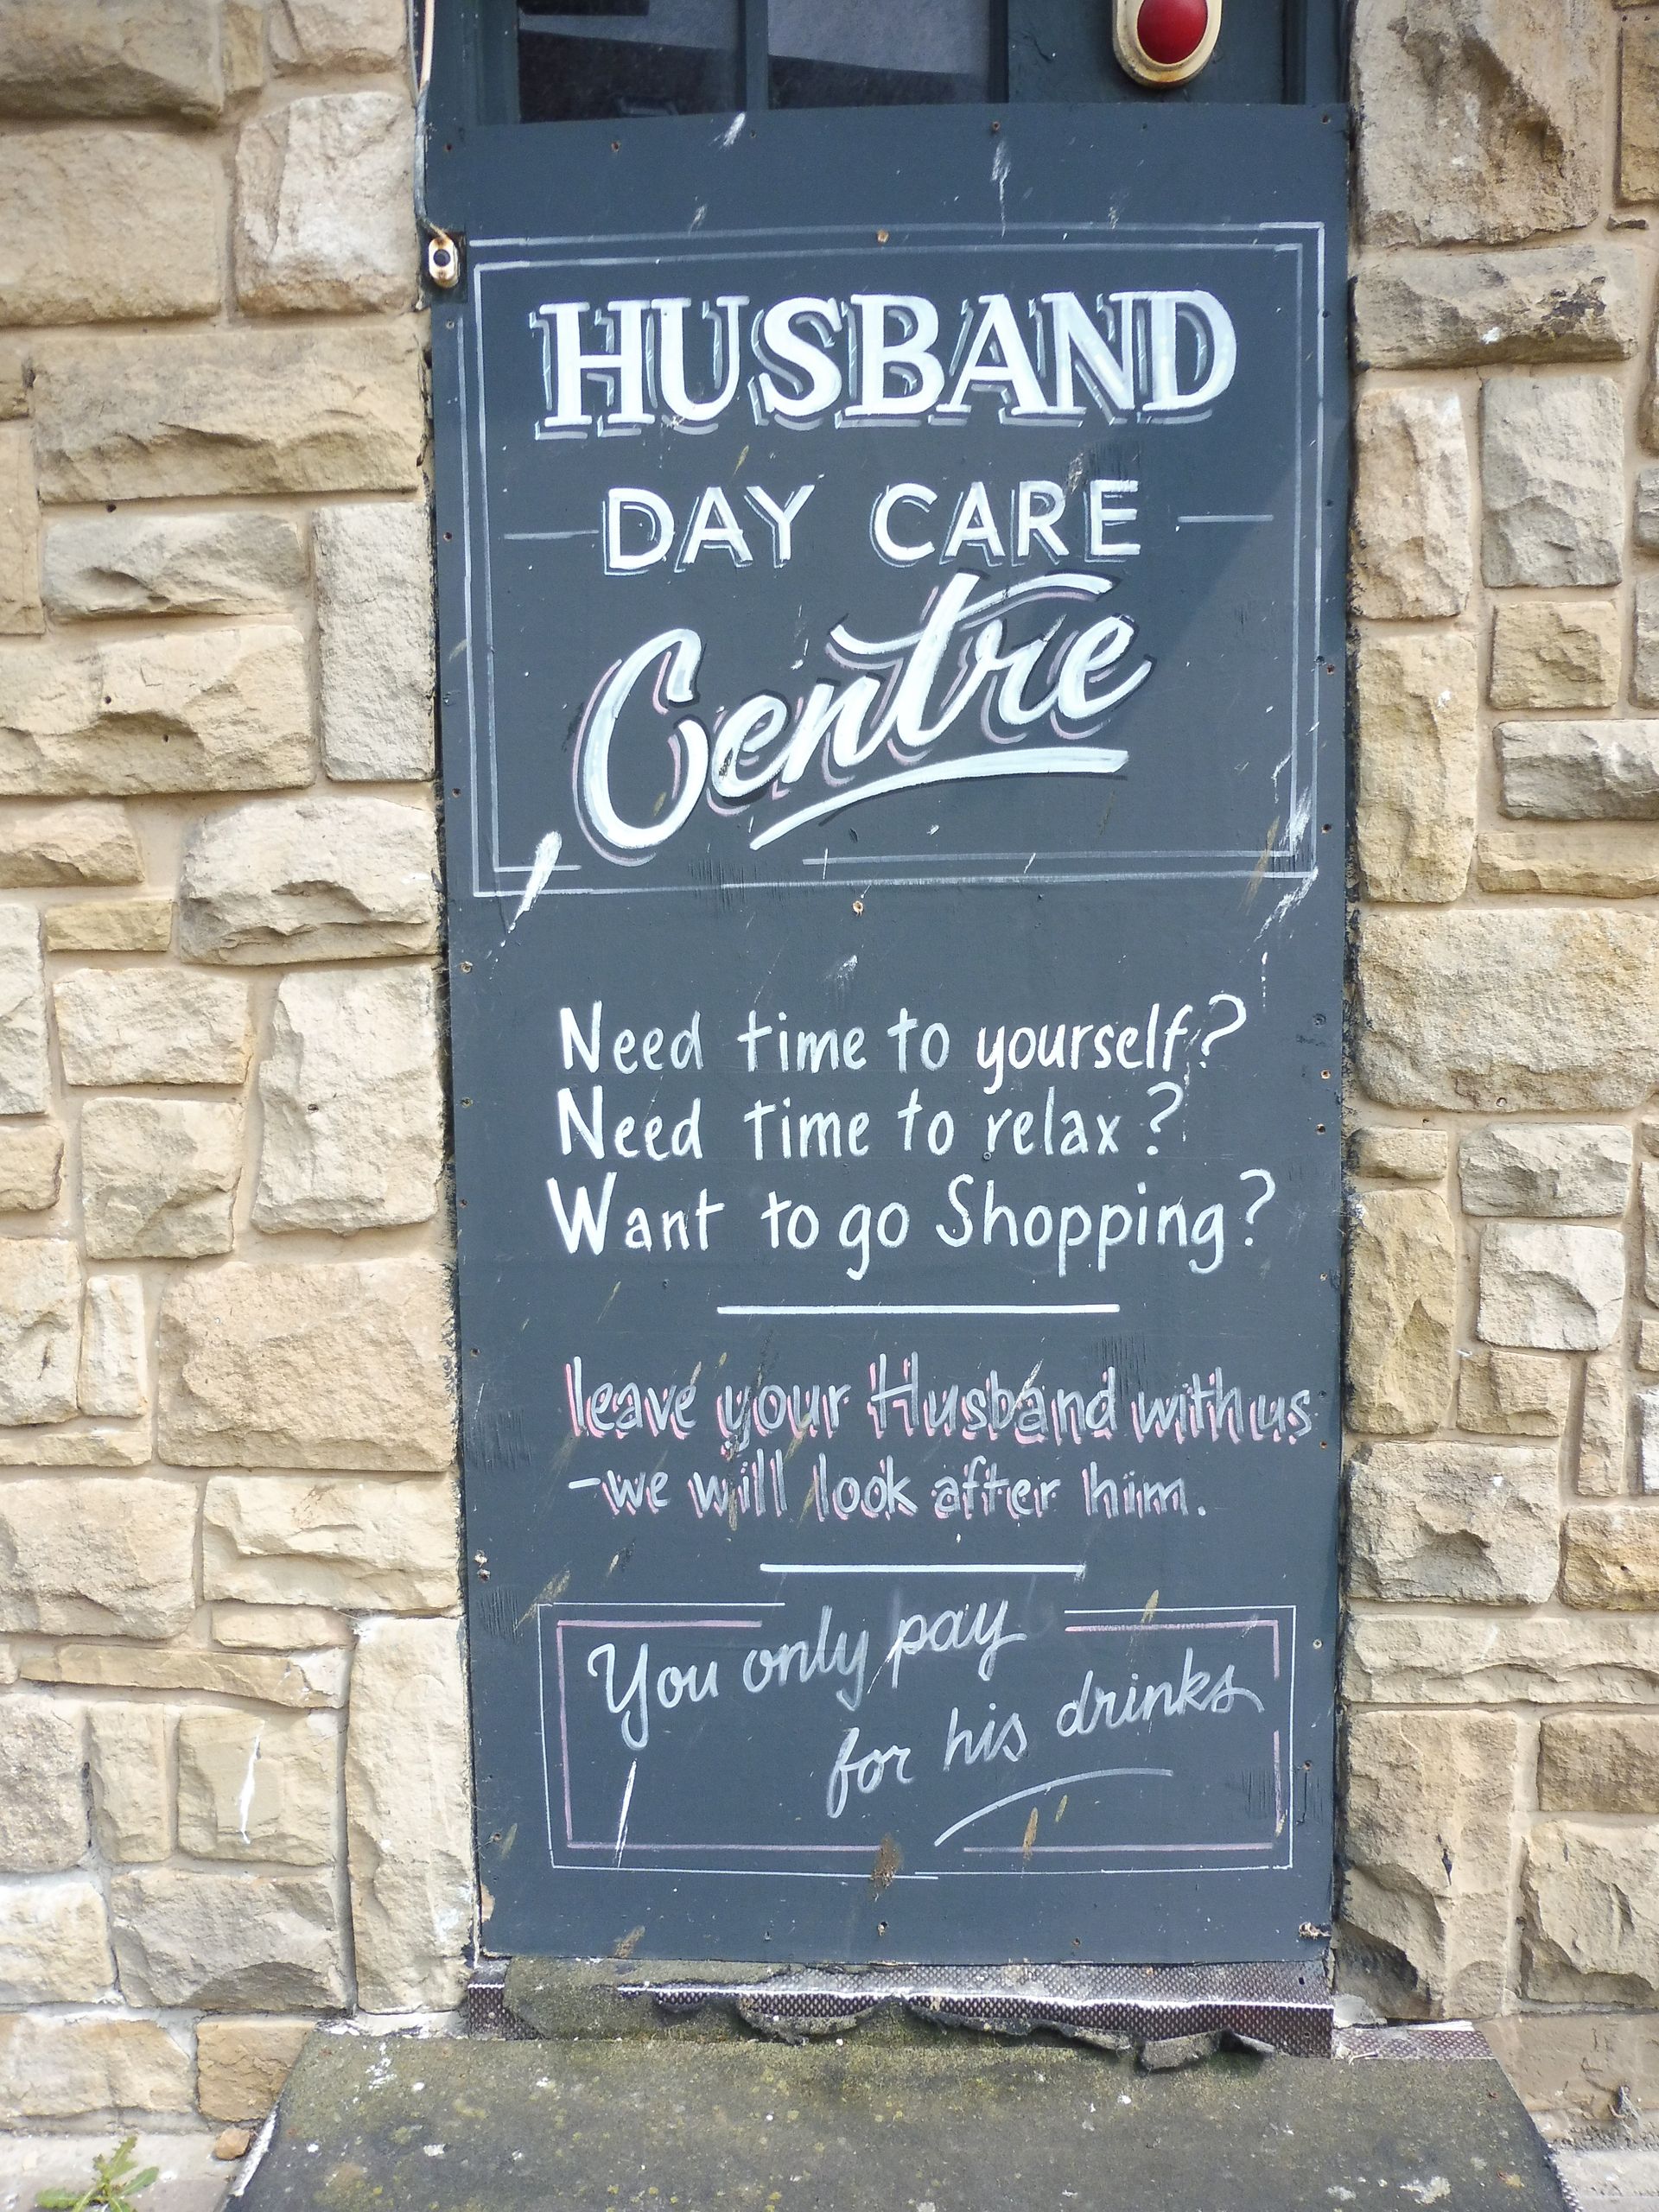 HUSBAND
DAY CARE
Centre
Need time to yourself?
Need time to relax?
Want to go Shopping?
leave your Husband with us
-we will look after him.
You only pay
for his drinks